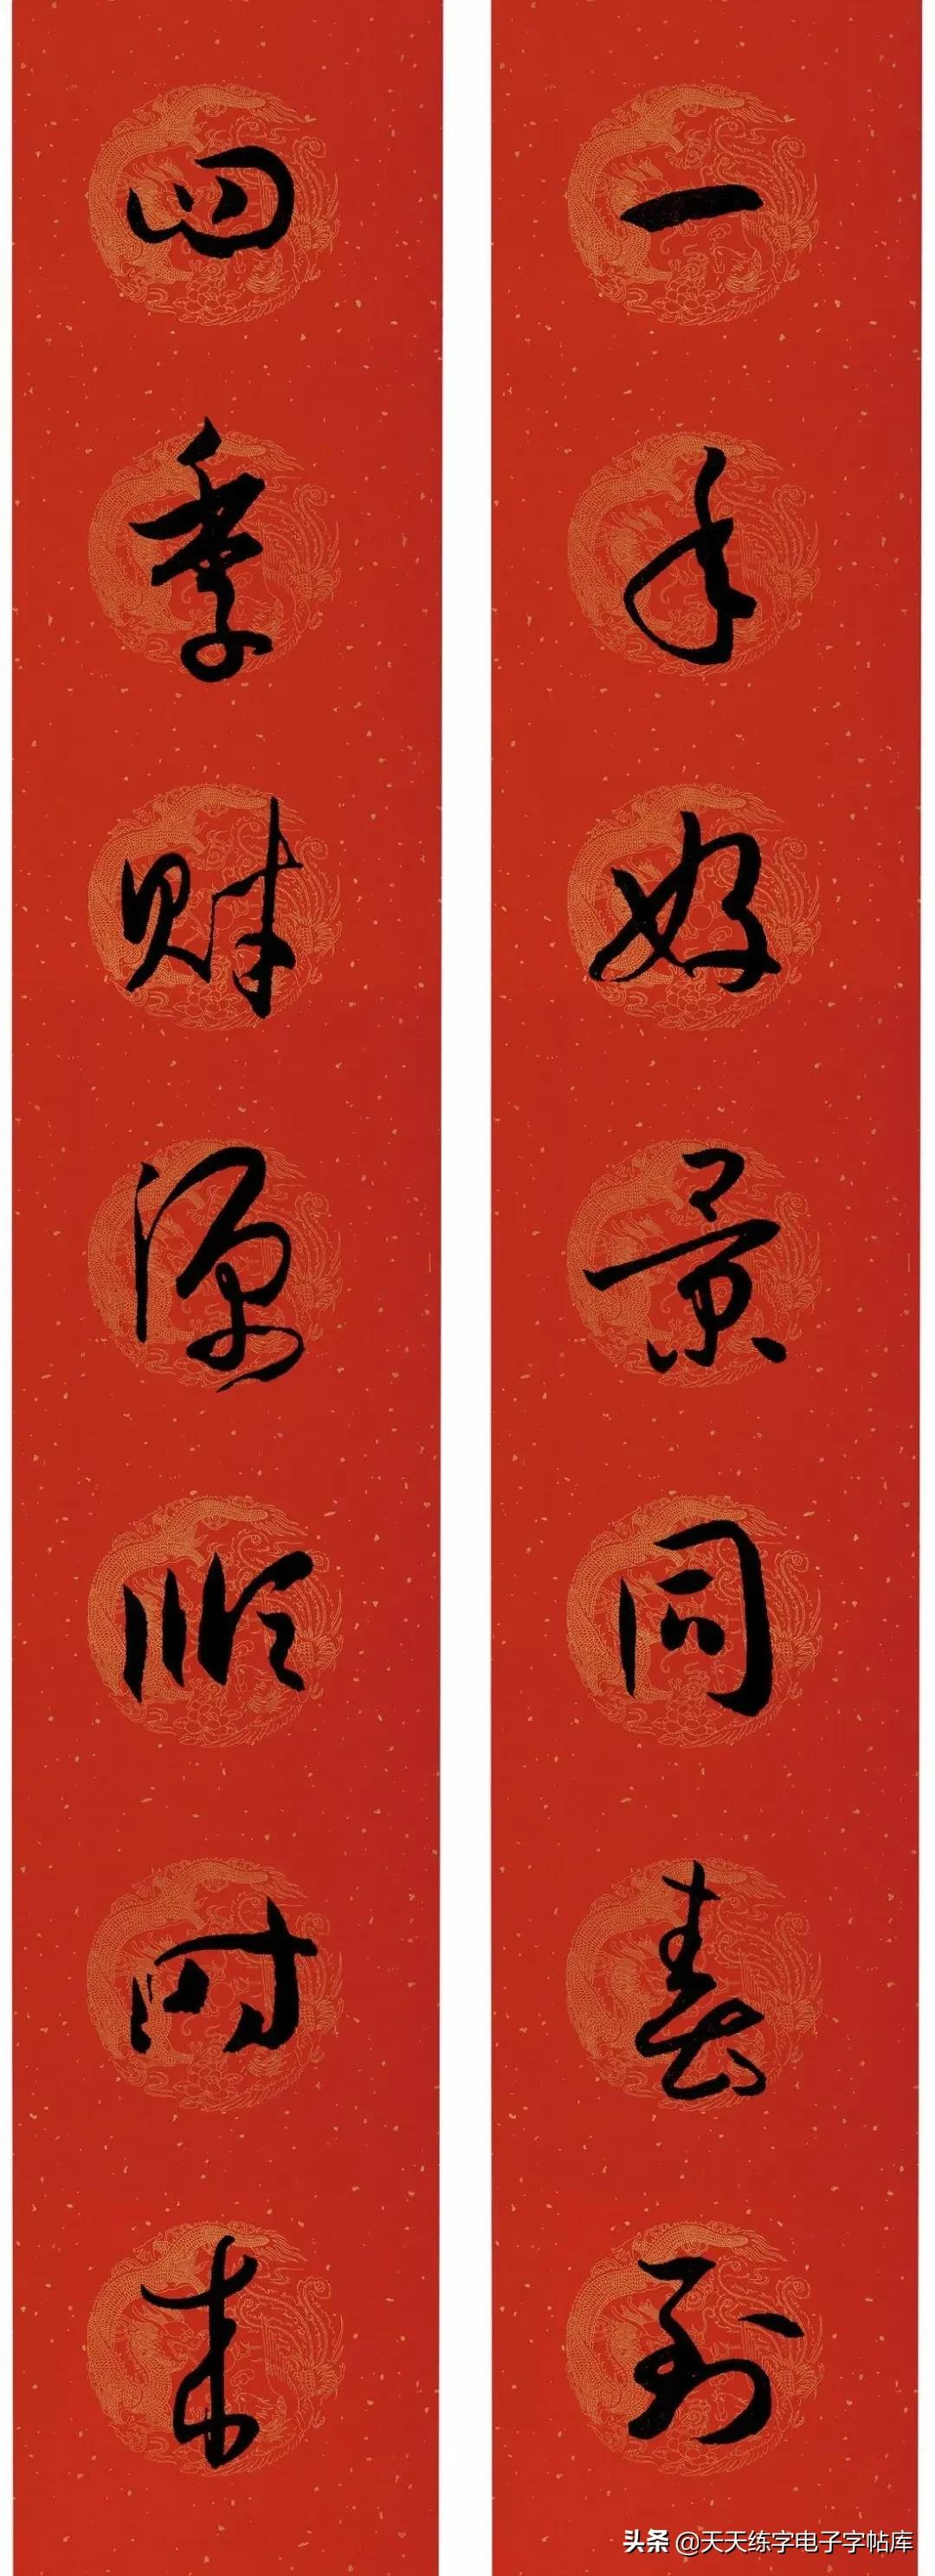 一年好景同春到
四季财源顺时来
头条 @天天练字电子字帖库